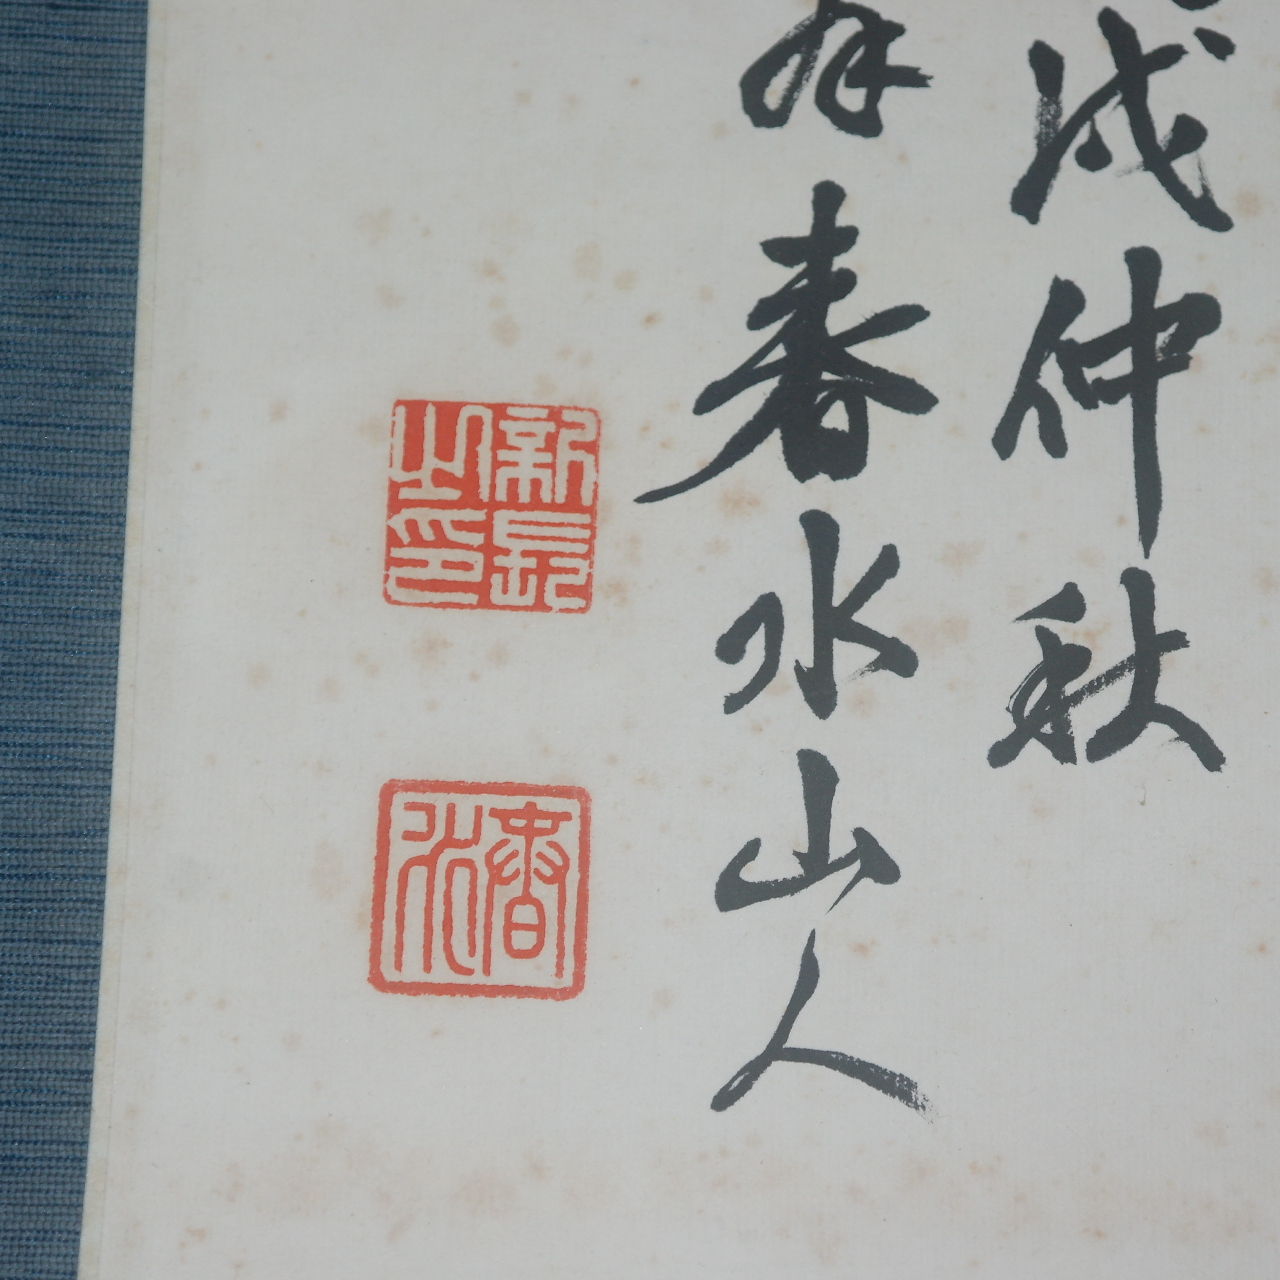 戌仲秋
春水山人
新長之印
春水